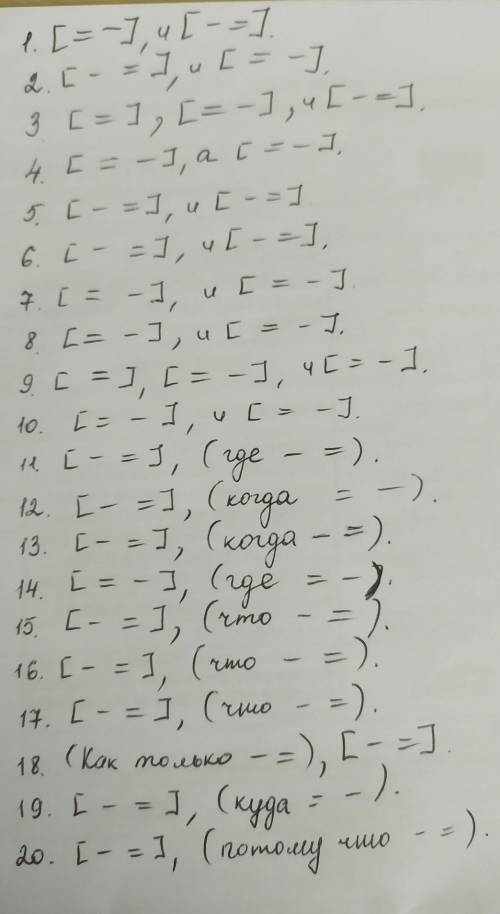 1. [= -], и [- =].
2. [- =], и [= -].
3 [=], [= -], и [- =].
4. [= -], а [= -].
5. [- =], и [- =]
6. [- =], и [- =].
7. [= -], и [= -].
8. [= -], и [= -].
9. [=], [= -], и [= -].
10. [= -], и [= -].
11. [- =], (где - =).
12. [- =], (когда = -).
13. [- =], (когда - =).
14. [= -], (где = -).
15. [- =], (что - =).
16. [- =], (что - =).
17. [- =], (что - =).
18. (Как только - =), [- =].
19. [- =], (куда = -).
20. [- =], (потому что - =).